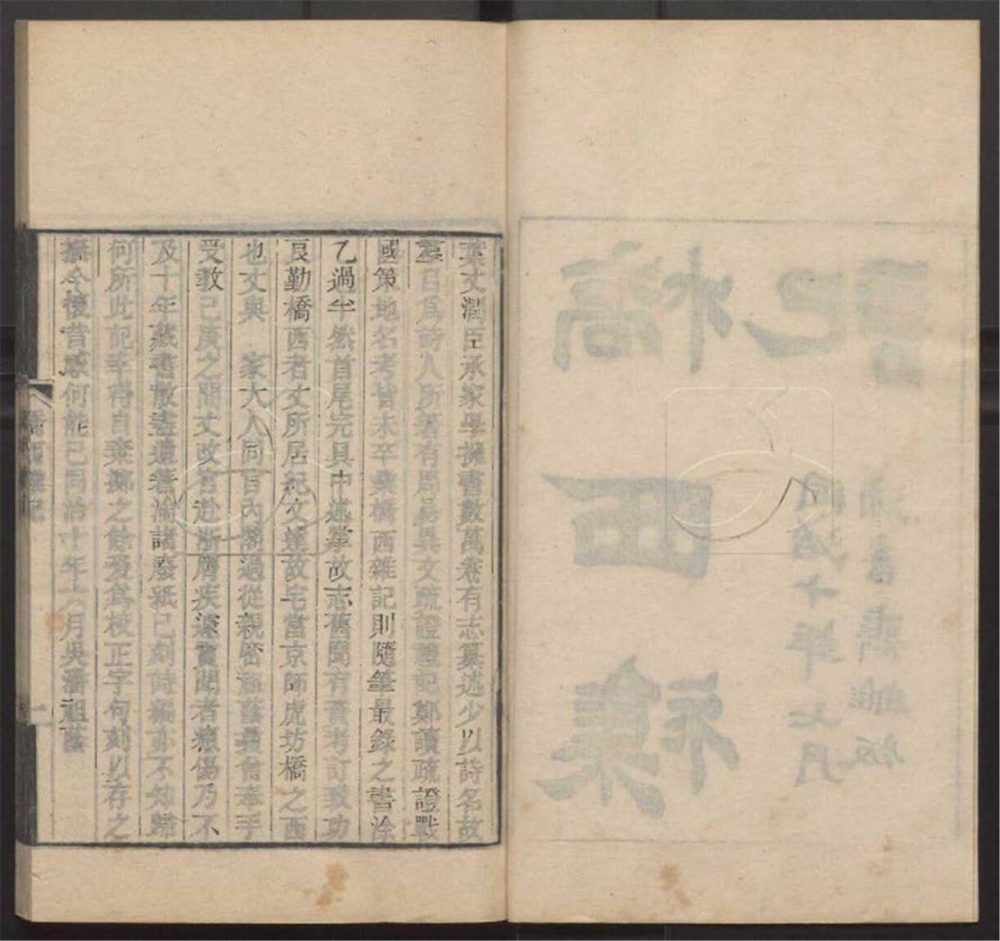 橋西
雜記
同治十年七月
滂喜齋雕版
葉丈潤臣承家學擁書數萬卷有志纂述少以詩名故
羣目爲詩人所著有周易異文疏證禮記鄭讀疏證戰
國策地名考皆未卒業橋西雜記則隨筆最錄之書塗
乙過半然首尾完具中述掌故志舊聞有資考訂致功
良勤橋西者丈所居紀文達故宅當京師虎坊橋之西
也丈與 家大人同官內閣過從親密祖蔭曩曾奉手
受教己庚之間丈改官赴浙膺疾遽聞者傷乃不
及十年藏書散盡遺著淪諸廢紙已刻詩編亦不知歸
何所此記幸得自棄擲之餘爰爲校正字句刻以存之
撫今懷昔感何能已同治十年六月吳潘祖蔭
橋西雜記 一